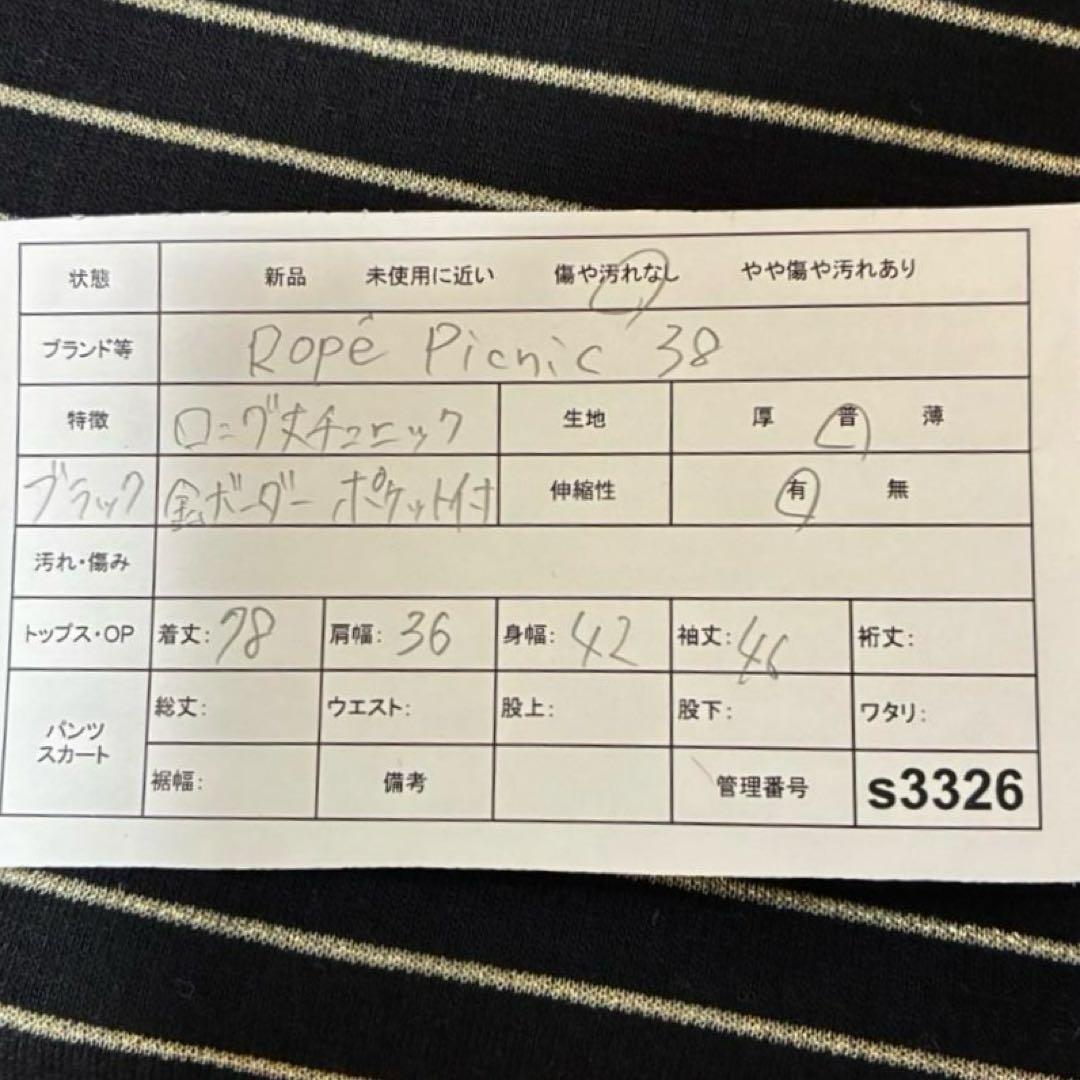 状態 新品 未使用に近い 傷や汚れなし やや傷や汚れあり
ブランド等 Ropé Picnic 38
特徴 ロング丈チュニック 生地 厚 普 薄
ブラック 金ボーダー ポケット付 伸縮性 有 無
汚れ・傷み
トップス・OP 着丈: 78 肩幅: 36 身幅: 42 袖丈: 46 裄丈:
パンツ スカート 総丈: ウエスト: 股上: 股下: ワタリ:
裾幅: 備考 管理番号 s3326